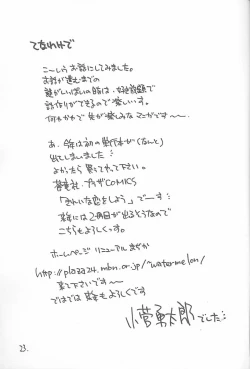 てなわけで
こーしうお話にしてみました。
お話が進むまでの
謎がいっぱいの時は、好き放題で
話作りができるので楽しいす。
何はともかく先が楽しみなマンガです〜〜
あ、今年は初の単行本が(なんと)
出てしまいました…
よかったら買ってやって下さい。
晋遊舎・プラザCOMICS
「みんな恋をしよう」でーす
来年には2冊目が出るそうなので
こちらもよろしくっす。
ホームページ リニューアル
http://plaza24.mbn.or.jp/~watermelon/
見て下さいです〜
ではでは 来年もよろしくです
小菅勇太郎でした…
23.